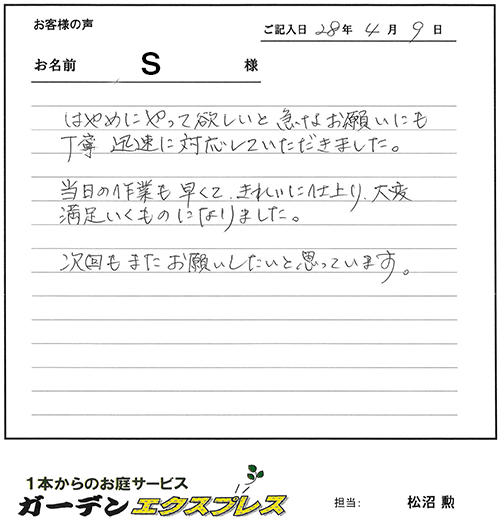 お客様の声
ご記入日 28年 4月 9日
お名前 S 様
はやめにやって欲しいと急なお願いにも
丁寧 迅速に対応していただきました。
当日の作業も早くて、きれいに仕上り、大変
満足いくものになりました。
次回もまたお願いしたいと思っています。
1本からのお庭サービス
ガーデンエクスプレス
担当: 松沼 勲